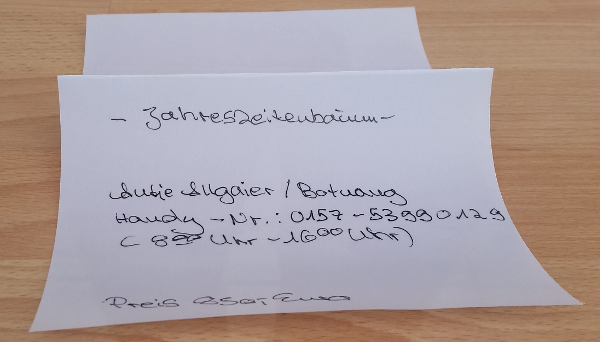 - Jahreszeitenbaum -
Antje Allgaier / Botnang
Handy - Nr.: 0157 - 53990129
( 8⁰⁰ Uhr - 16⁰⁰ Uhr)
Preis 850,- Euro